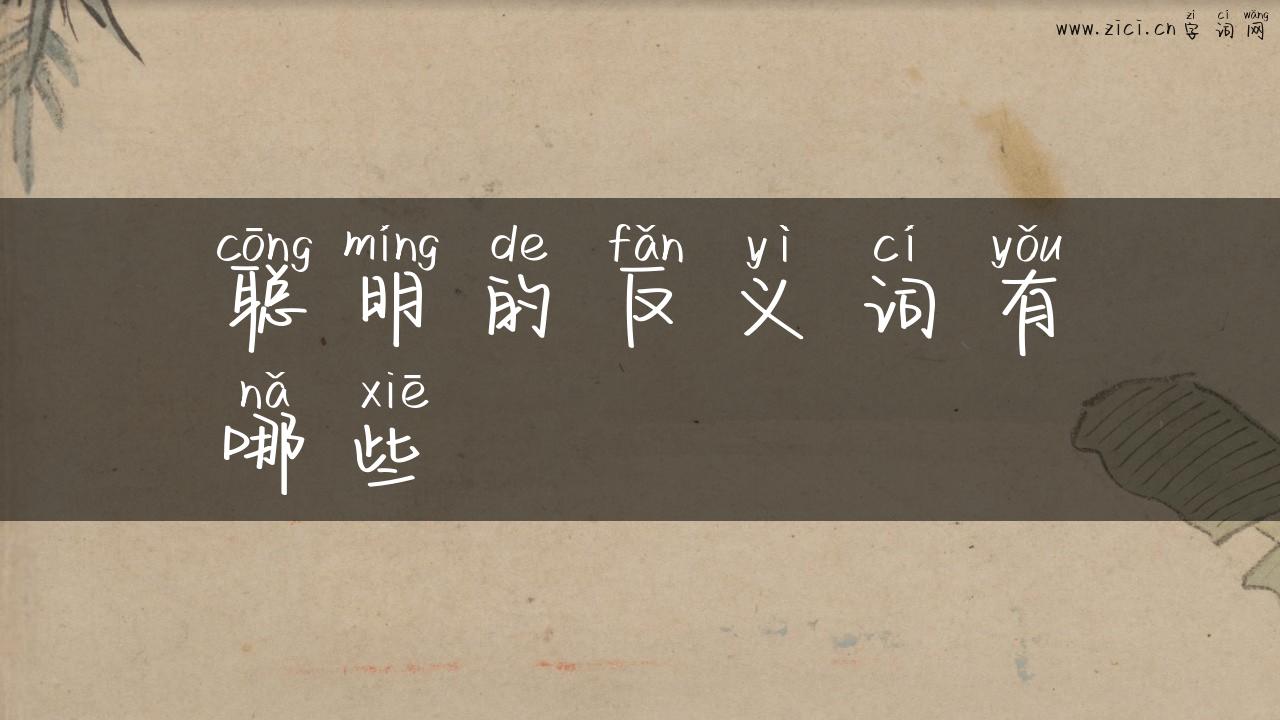 zì cí wǎng
www.zici.cn 字词网
cōng míng de fǎn yì cí yǒu
聪明的反义词有
nǎ xiē
哪些